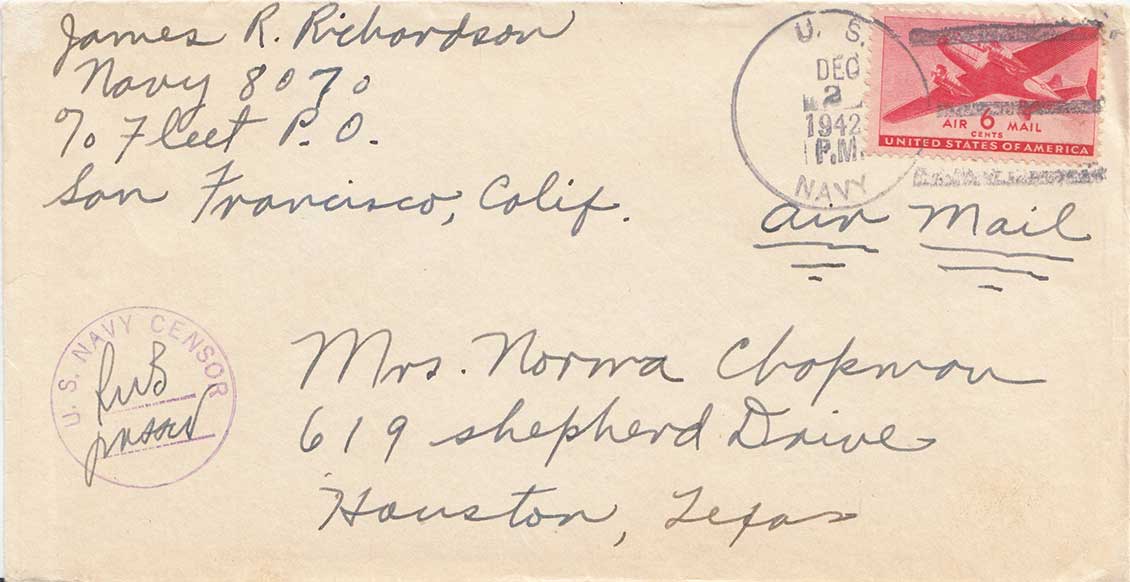 James R. Richardson
Navy 8070
℅ Fleet P.O.
San Francisco, Calif.
U. S.
DEC
2
1942
P.M.
NAVY
AIR 6 MAIL
CENTS
UNITED STATES OF AMERICA
Air Mail
U. S. NAVY CENSOR
RWB
passed
Mrs. Norma Chapman
619 Shepherd Drive
Houston, Texas